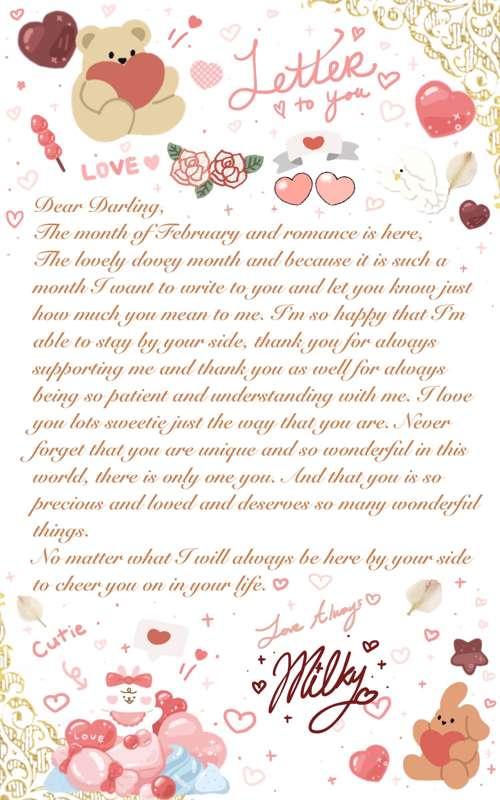 Letter
to you
LOVE
Dear Darling,
The month of February and romance is here,
The lovely dovey month and because it is such a
month I want to write to you and let you know just
how much you mean to me. I'm so happy that I'm
able to stay by your side, thank you for always
supporting me and thank you as well for always
being so patient and understanding with me. I love
you lots sweetie just the way that you are. Never
forget that you are unique and so wonderful in this
world, there is only one you. And that you is so
precious and loved and deserves so many wonderful
things.
No matter what I will always be here by your side
to cheer you on in your life.
Love Always
Cutie
Milky
LOVE